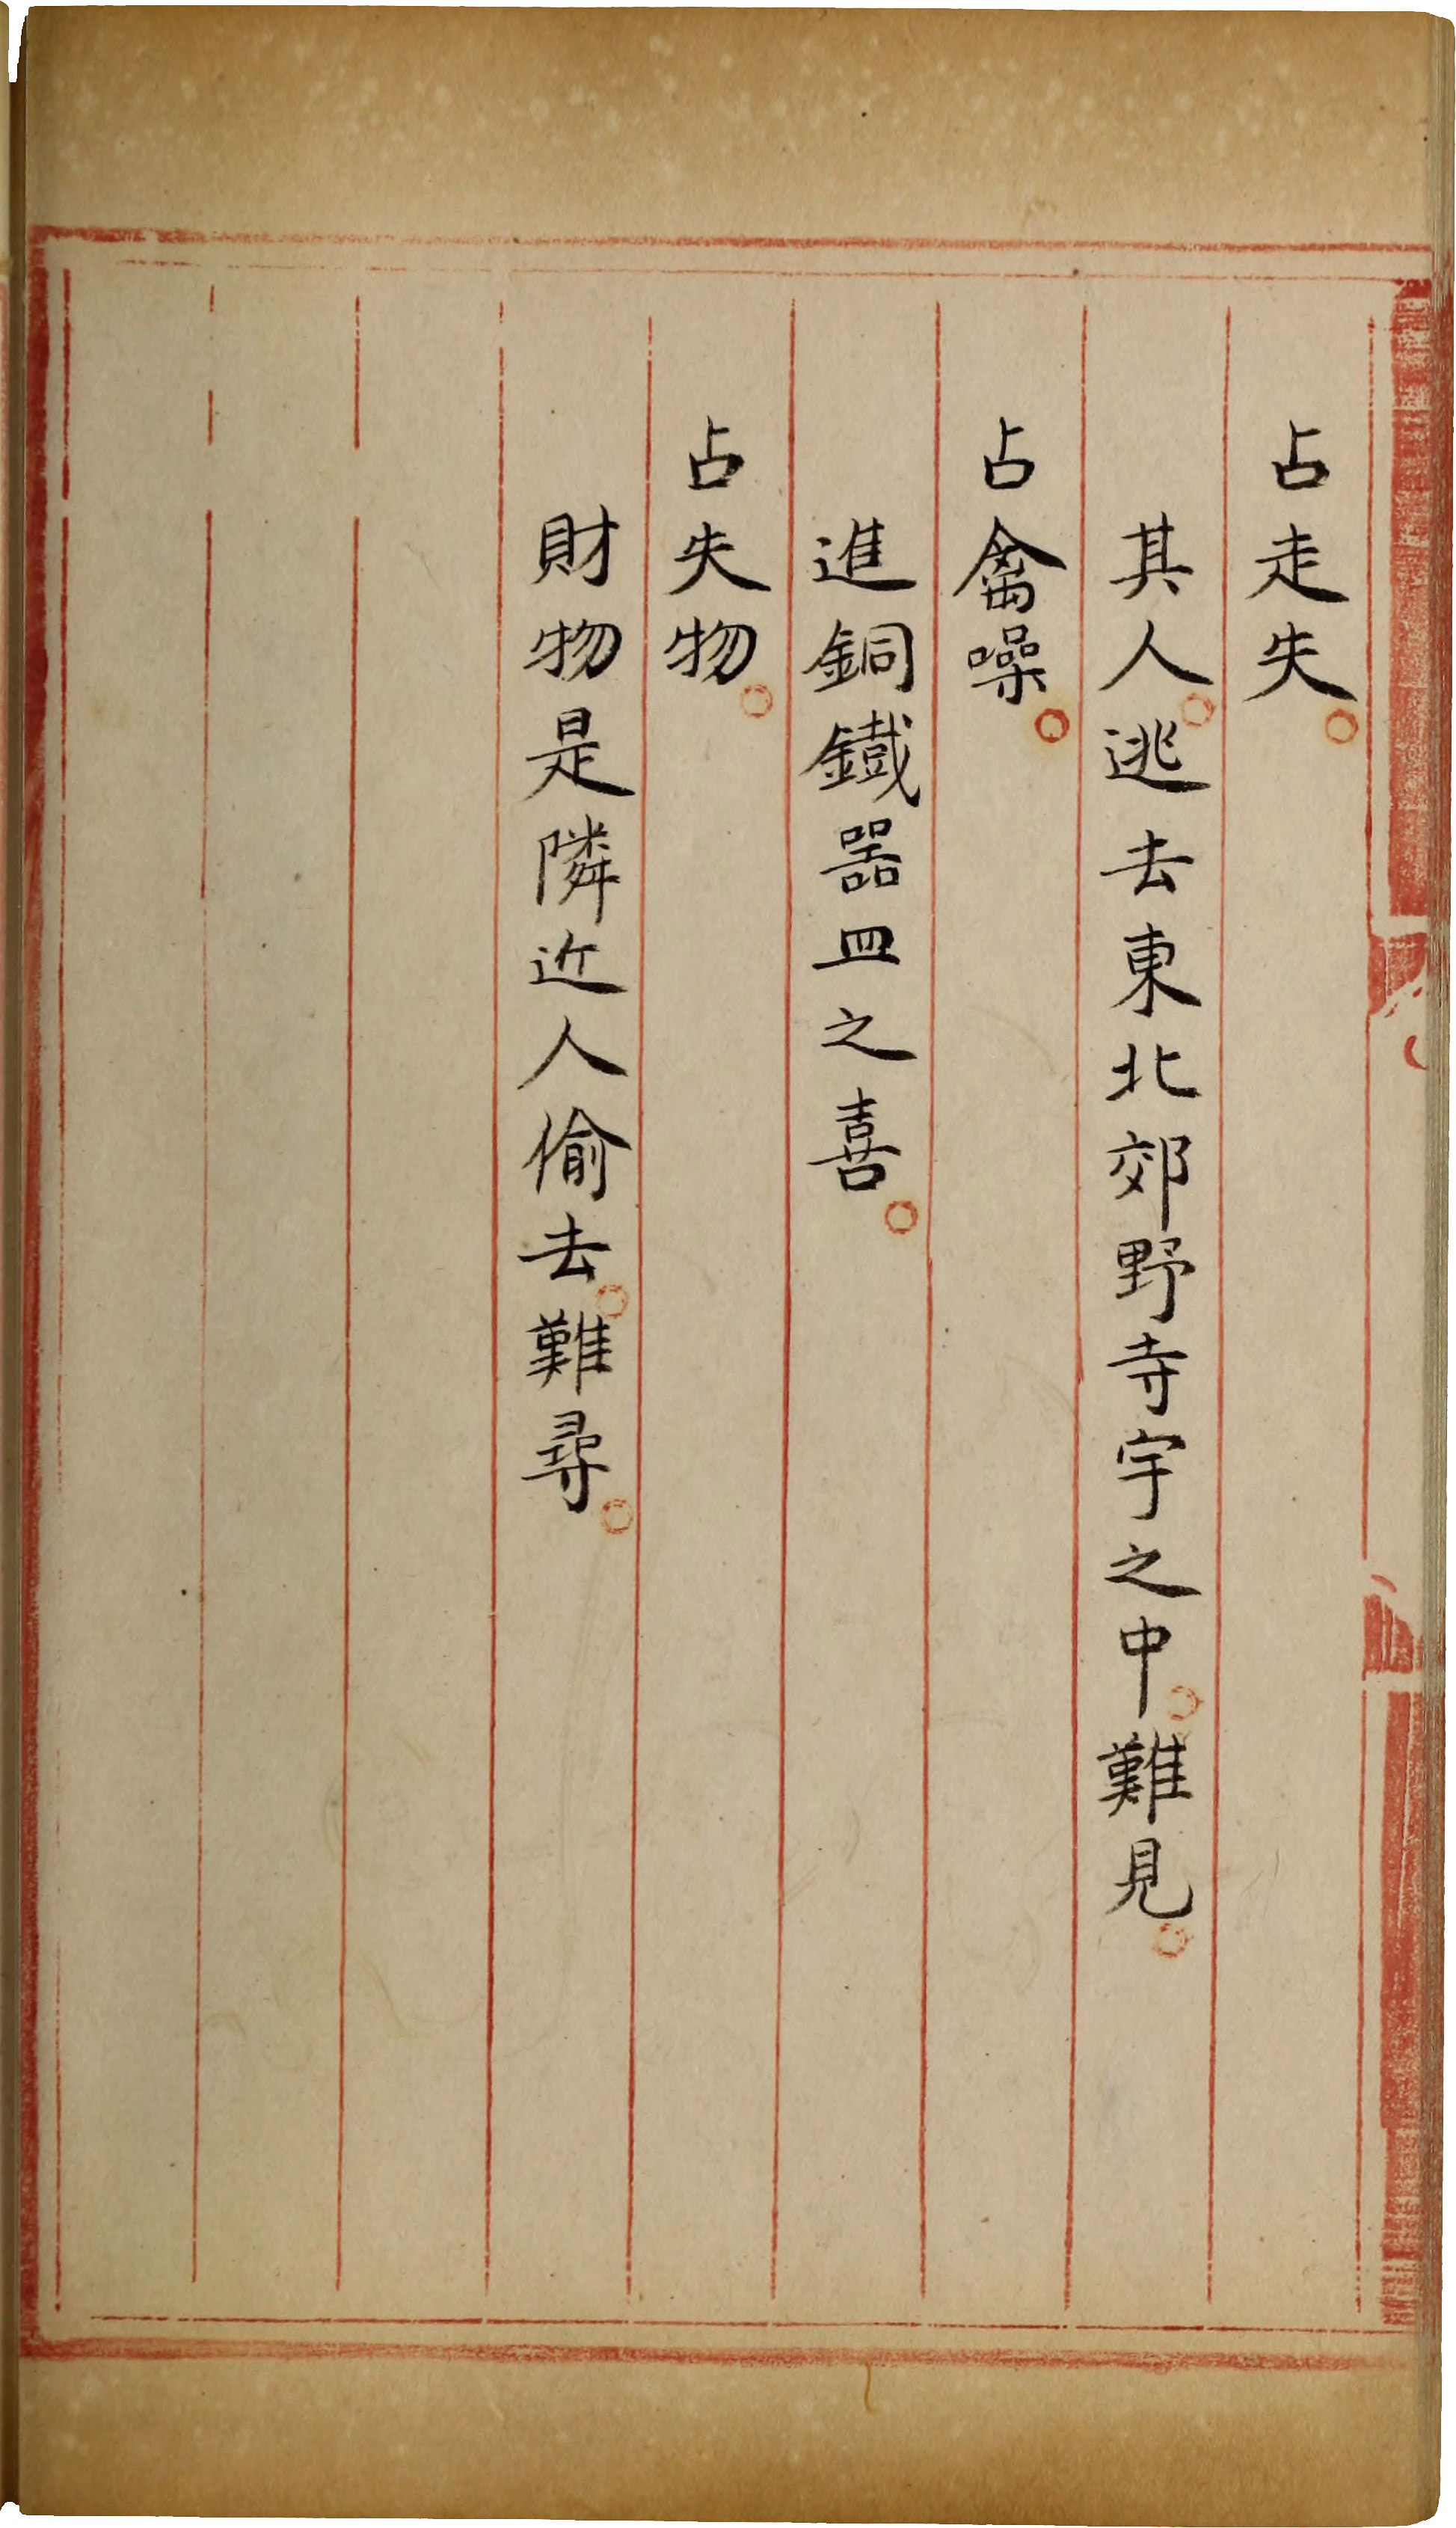 占走失。
其人。逃去東北郊野寺宇之中。難見。
占禽噪。
進銅鐵器皿之喜。
占失物。
財物是隣近人偷去。難尋。